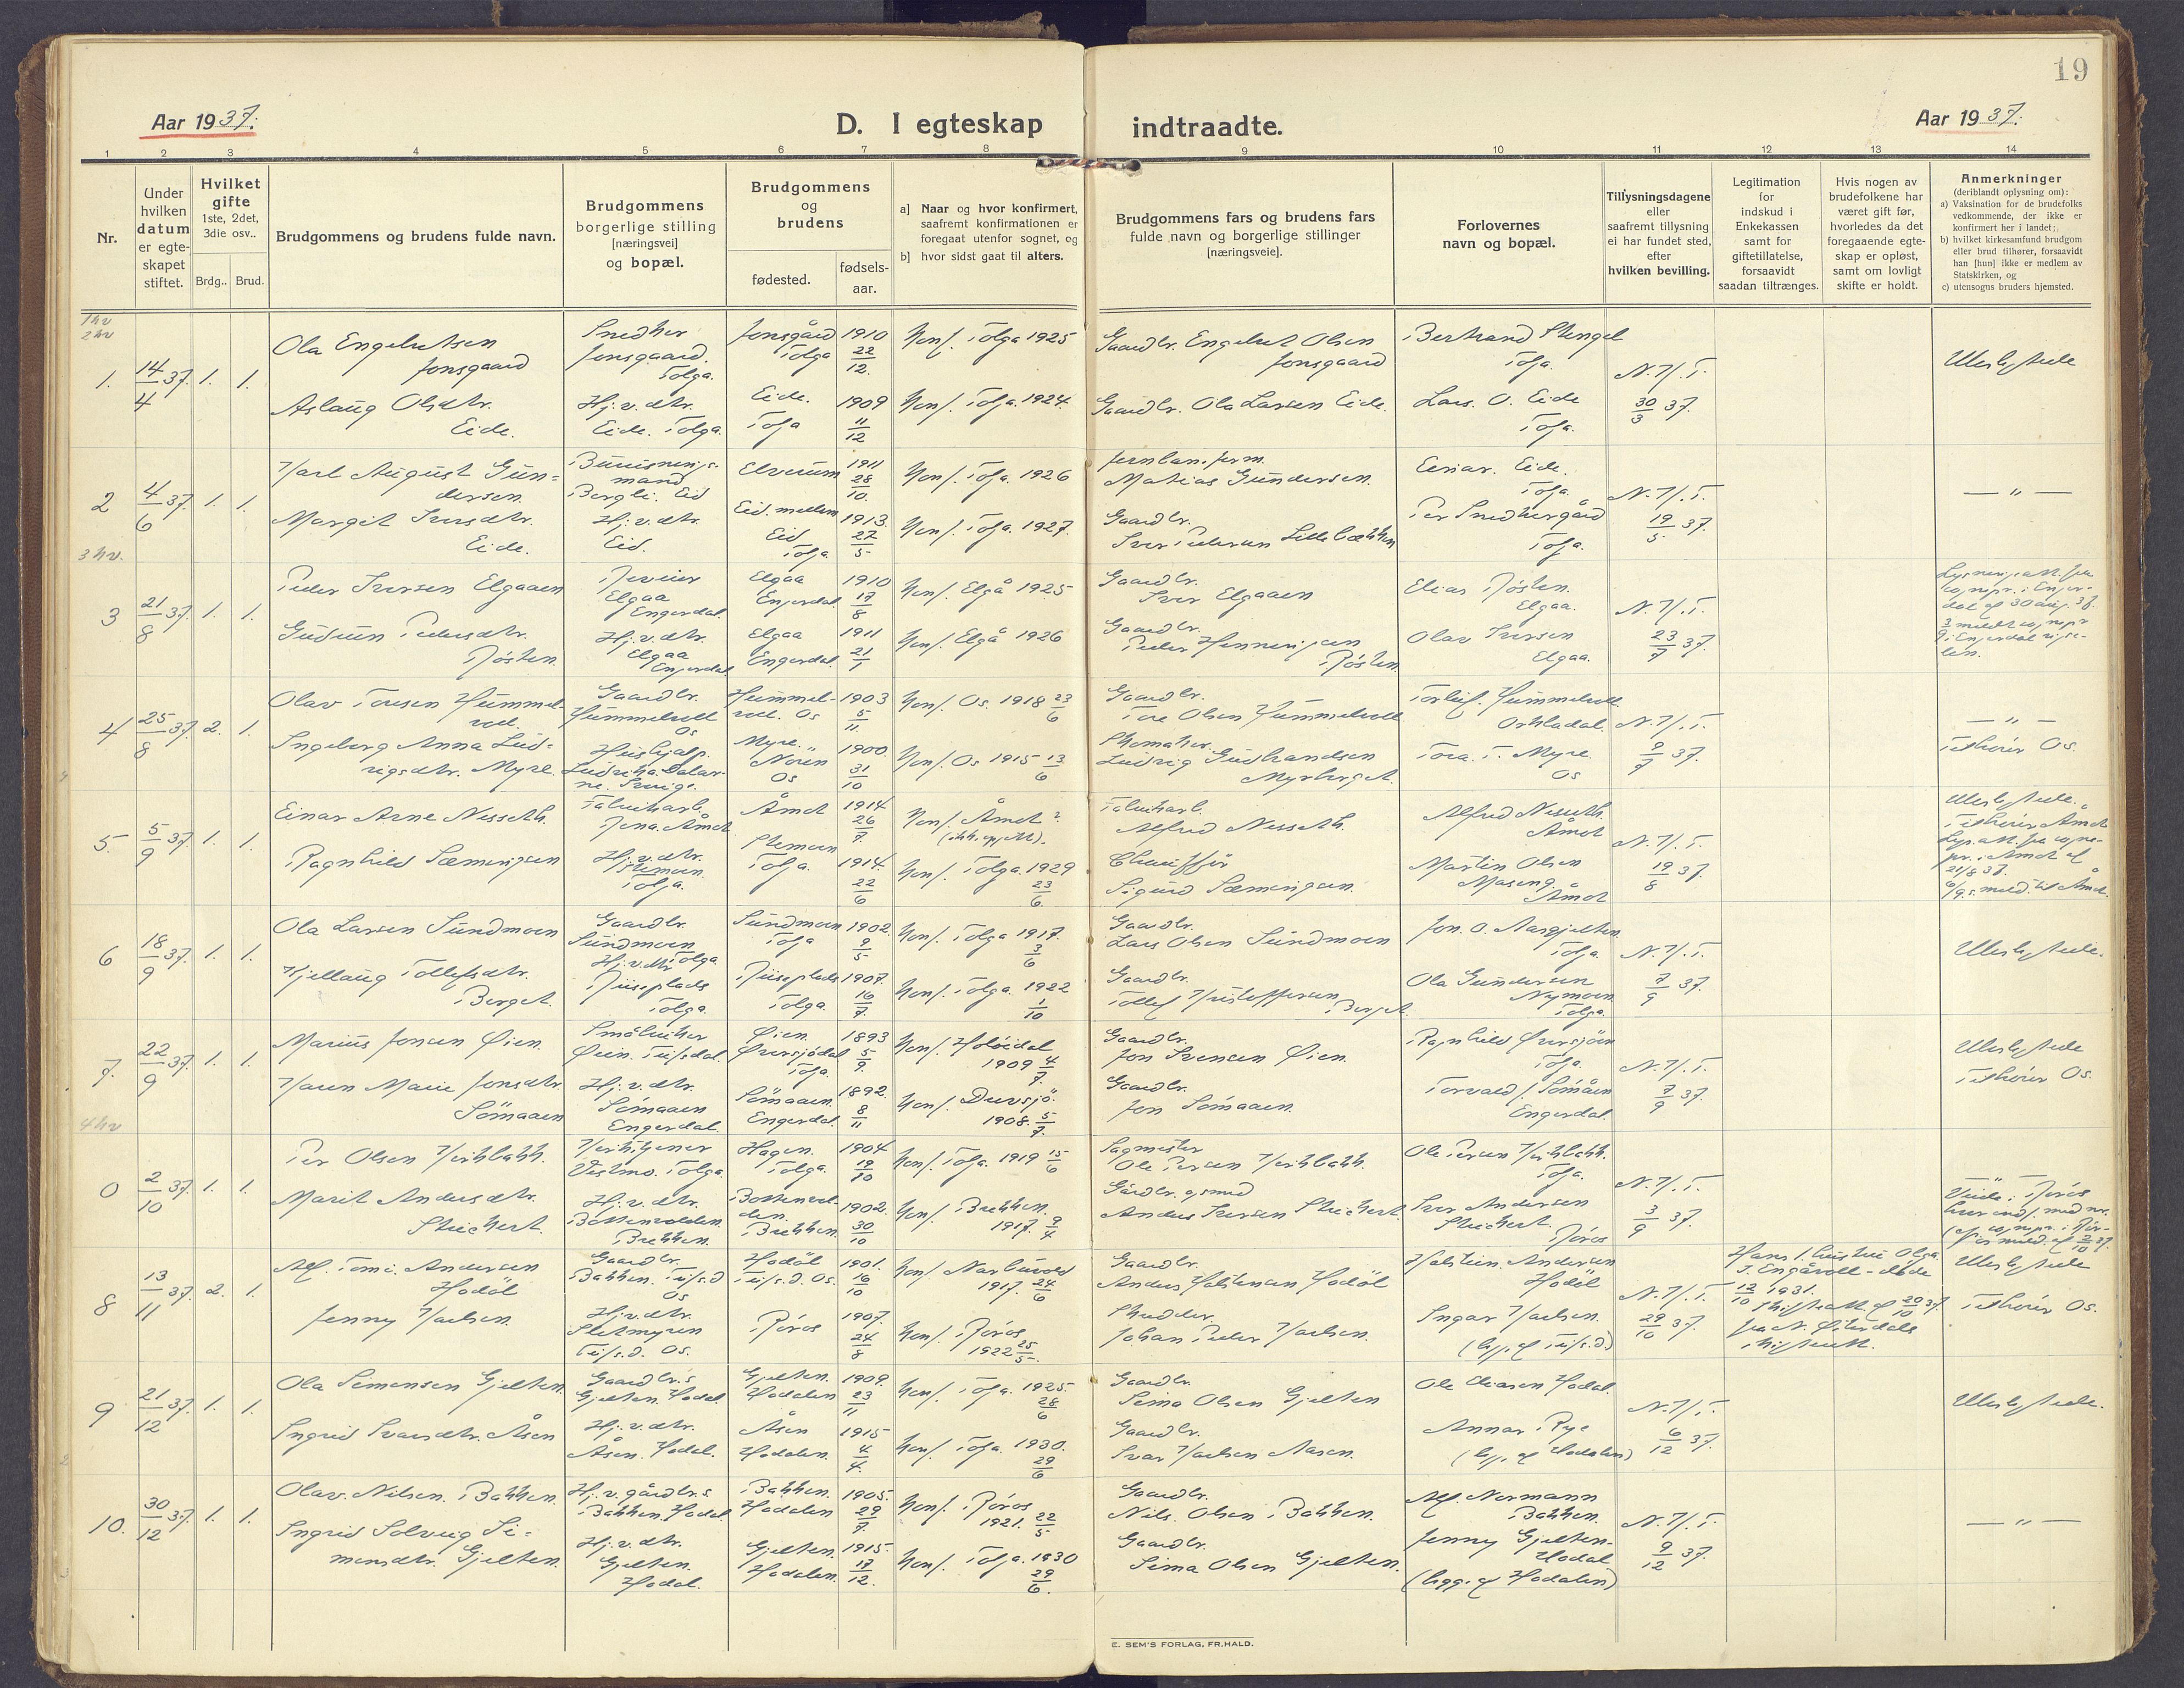 19
Aar 1937.
D. I egteskap indtraadte.
Aar 1937.
1 2 3 4 5 6 7 8 9 10 11 12 13 14
Nr.
Under
hvilken
datum
er egte-
skapet
stiftet.
Hvilket
gifte
1ste, 2det,
3die osv..
Brdg.. Brud.
Brudgommens og brudens fulde navn.
Brudgommens
borgerlige stilling
[næringsvei]
og bopæl.
Brudgommens
og
brudens
fødested.
fødsels-
aar.
a] Naar og hvor konfirmert,
saafremt konfirmationen er
foregaat utenfor sognet, og
b] hvor sidst gaat til alters.
Brudgommens fars og brudens fars
fulde navn og borgerlige stillinger
[næringsveie].
Forlovernes
navn og bopæl.
Tillysningsdagene
eller
saafremt tillysning
ei har fundet sted,
efter
hvilken bevilling.
Legitimation
for
indskud i
Enkekassen
samt for
giftetillatelse,
forsaavidt
saadan tiltrænges.
Hvis nogen av
brudefolkene har
været gift før,
hvorledes da det
foregaaende egte-
skap er opløst,
samt om lovligt
skifte er holdt.
Anmerkninger
(deriblandt oplysning om):
a) Vaksination for de brudefolks
vedkommende, der ikke er
konfirmert her i landet;
b) hvilket kirkesamfund brudgom
eller brud tilhører, forsaavidt
han [hun] ikke er medlem av
Statskirken, og
c) utensogns bruders hjemsted.
1 hv
2 hv
1. 14/4 37. 1. 1.
Ola Engebretsen
Jonsgaard
Snedker
Jonsgaard.
Tolga.
Jonsgård
Tolga
1910
22/12.
Konf. Tolga 1925
Gaardbr. Engebret Olsen
Jonsgaard
Bertrand Stengel
Tolga.
N.K.T.
30/3 37.
Aslaug Olsdtr.
Eide.
Hj.v. dtr.
Eide. Tolga.
Eide.
Tolga
1909
11/12
Konf. Tolga. 1924.
Gaardbr. Ola Larsen Eide.
Lars. O. Eide
Tolga.
2 4/6 37. 1. 1.
Karl August Gun=
dersen.
Bureisnings-
mand
Bergli. Eid
Elverum
1911
28/10.
Konf. Tolga. 1926
Jernban. form.
Matias Gundersen.
Einar. Eide.
Tolga.
N.K.T.
19/5 37.
— " —
Margit Iversdtr.
Eide.
Hj.v. dtr.
Eid.
Eid. mellem
Eid
Tolga
1913.
27/5
Konf. Tolga. 1927.
Gaardbr.
Iver Pedersen Lillebækken
Per Snedkergård
Tolga.
3 hv.
3 21/8 37. 1. 1.
Peder Iversen Elgaaen
Elgaa
Engerdal.
Elgaa
Engerdal.
1910
17/8
Konf. Elgå 1925
Gaardbr.
Iver Elgaaen
Elias Røsten.
Elgaa.
N.K.T.
23/7 37.
Gudrun Pedersdtr.
Røsten.
Hj.v. dtr.
Elgaa
Engerdal
Elgaa
Engerdal.
1911
21/1
Konf. Elgå 1926
Gaardbr.
Peder Henningsen
Røsten.
Olav Iversen
Elgaa.
4 25/8 37. 2. 1.
Olav Toresen Hummel-
voll.
Gaardbr.
Hummelvoll
Os
Hummel-
voll. Os
1903
5/11.
Konf. Os. 1918 23/6
Gaardbr.
Tore Olsen Hummelvoll
Torleif. Hummelvoll
Orkladal.
N.K.T.
9/7 37.
— " —
Tilhører Os.
Ingeborg Anna Lud-
vigsdtr. Myre.
Hushjelp.
Myre.
Os
1900.
31/10
Konf. Os 1915 13/6
Skomaker.
Ludvig Gudbrandsen
Myrberget.
Tora. T. Myre.
Os
5. 5/9 37. 1. 1.
Einar Arne Nesseth.
Fabrikarb.
Rena. Åmot
Åmot
1914
26/7.
Konf. Åmot?
(ikke oppgitt).
Fabrikarb.
Alfred Nesseth.
Alfred Nesseth.
Åmot
N.K.T.
19/8 37.
Ulesbystuede.
Tilhører Åmot
Ragnhild Sæmingsen
Hj.v. dtr.
Stemoen.
Tolga.
Stemoen
Tolga.
1914.
22/6
Konf. Tolga. 1929
23/6.
Chauffør
Sigurd Sæmingsen.
Martin Olsen
Maseng.
Åmot
6 18/9 37. 1. 1.
Ola Larsen Sundmoen
Gaardbr.
Sundmoen
Tolga.
Sundmoen
Tolga
1902.
9/5
Konf. Tolga 1917.
3/6
Gaardbr.
Lars Olsen Sundmoen
Jon. O. Aasgjelten
Tolga.
N.K.T.
7/9 37.
Kjellaug Tollefsdtr.
Berget.
Hj.v.dtr
Ruseplads
Tolga.
Ruseplads
Tolga.
1907.
16/7.
Konf. Tolga. 1922
1/10
Gaardbr.
Tollef Kristoffersen
Berget.
Ola Gundersen
Nymoen
Tolga.
7. 22/9 37. 1. 1.
Marius Jonsen Øien.
Småbruker
Øien. Tufsdal.
Øien.
Øversjødal
Tolga.
1893
5/9.
Konf. Holøidal
1909 4/7
Gaardbr.
Jon Svensen Øien.
Ragnhild Øversjøen
Tolga.
N.K.T.
7/9 37.
Tilhører Os.
Karen Marie Jonsdtr
Sömaaen
Hj.v. dtr.
Sömaaen
Engerdal.
Sömaaen.
Engerdal.
1892.
8/11
Konf. Drevsjø.
1908. 5/7.
Gaardbr.
Jon Sömaaen.
Torvald J. Sömåen
Engerdal.
4 hv
0 2/10 37. 1. 1.
Per Olsen Kirkbakk.
Kirketjener
Vestmo. Tolga.
Hagen.
Tolga.
1904
19/10
Konf. Tolga. 1919 15/6
Sagmester
Ole Persen Kirkbakk.
Ole Persen Kirkbakk.
Tolga.
N.K.T.
3/9 37.
Marit Andersdtr.
Strickert.
Hj.v. dtr.
Bottenvolden.
Brekken.
Bottenvol-
den.
Brekken.
1902.
30/10
Konf. Brekken.
1917. 9/4
Gårdbr. og smed
Anders Iversen Strickert
Iver Andersen
Strickert.
Røros
Viede i Røros
8 13/11 37. 2. 1.
Alf. Tomi. Andersen
Hodöl
Gaardbr.
Bakken. Tufs.d
Os
Hodöl
Tufs.d. Os.
1901.
16/10
Konf. Narbuvold
1917. 24/6
Gaardbr.
Anders Halstensen Hodöl
Halstein. Andersen
Hodöl
N.K.T.
29/10 37.
12/10 1931.
Tilhører Os.
Jenny Karlsen.
Hj.v. dtr.
Sletmyren
Tufs.d. Os.
Røros
1907.
24/8
Konf. Røros
1922 25/5.
Skredder.
Johan Peder Karlsen.
Ingar Karlsen.
9 21/12 37. 1. 1.
Ola Simensen Gjelten.
Gaardbr.s
Gjelten. Hodal.
Gjelten.
Hodalen
1909.
23/11
Konf. Tolga. 1925.
28/6
Gaardbr.
Sima Olsen Gjelten
Ole Eliasen Hodal.
N.K.T.
6/12 37.
Ingrid Ivarsdtr. Åsen
Hj.v. dtr.
Åsen. Hodal.
Åsen
Hodalen.
1915
4/4.
Konf. Tolga. 1930.
29/6
Gaardbr.
Ivar Karlsen Aasen.
Annar Rye
10. 30/12 37. 1. 1.
Olav. Nilsen. Bakken.
Hj.v. gårdbr.s
Bakken. Hodal
Bakken.
Hodalen
1905.
29/7.
Konf. Røros
1921. 22/5
Gaardbr.
Nils. Olsen. Bakken.
Alf. Normann
Bakken.
N.K.T.
9/12 37.
— " —
Ingrid Solveig Si-
mensdtr. Gjelten.
Hj.v. dtr.
Gjelten.
Hodal.
Gjelten.
Hodalen.
1915
17/12.
Konf. Tolga. 1930
29/6.
Gaardbr.
Sima Olsen Gjelten.
Jenny Gjelten-
Hodal
(begge af Hodalen)
E. SEM'S FORLAG, FR.HALD.